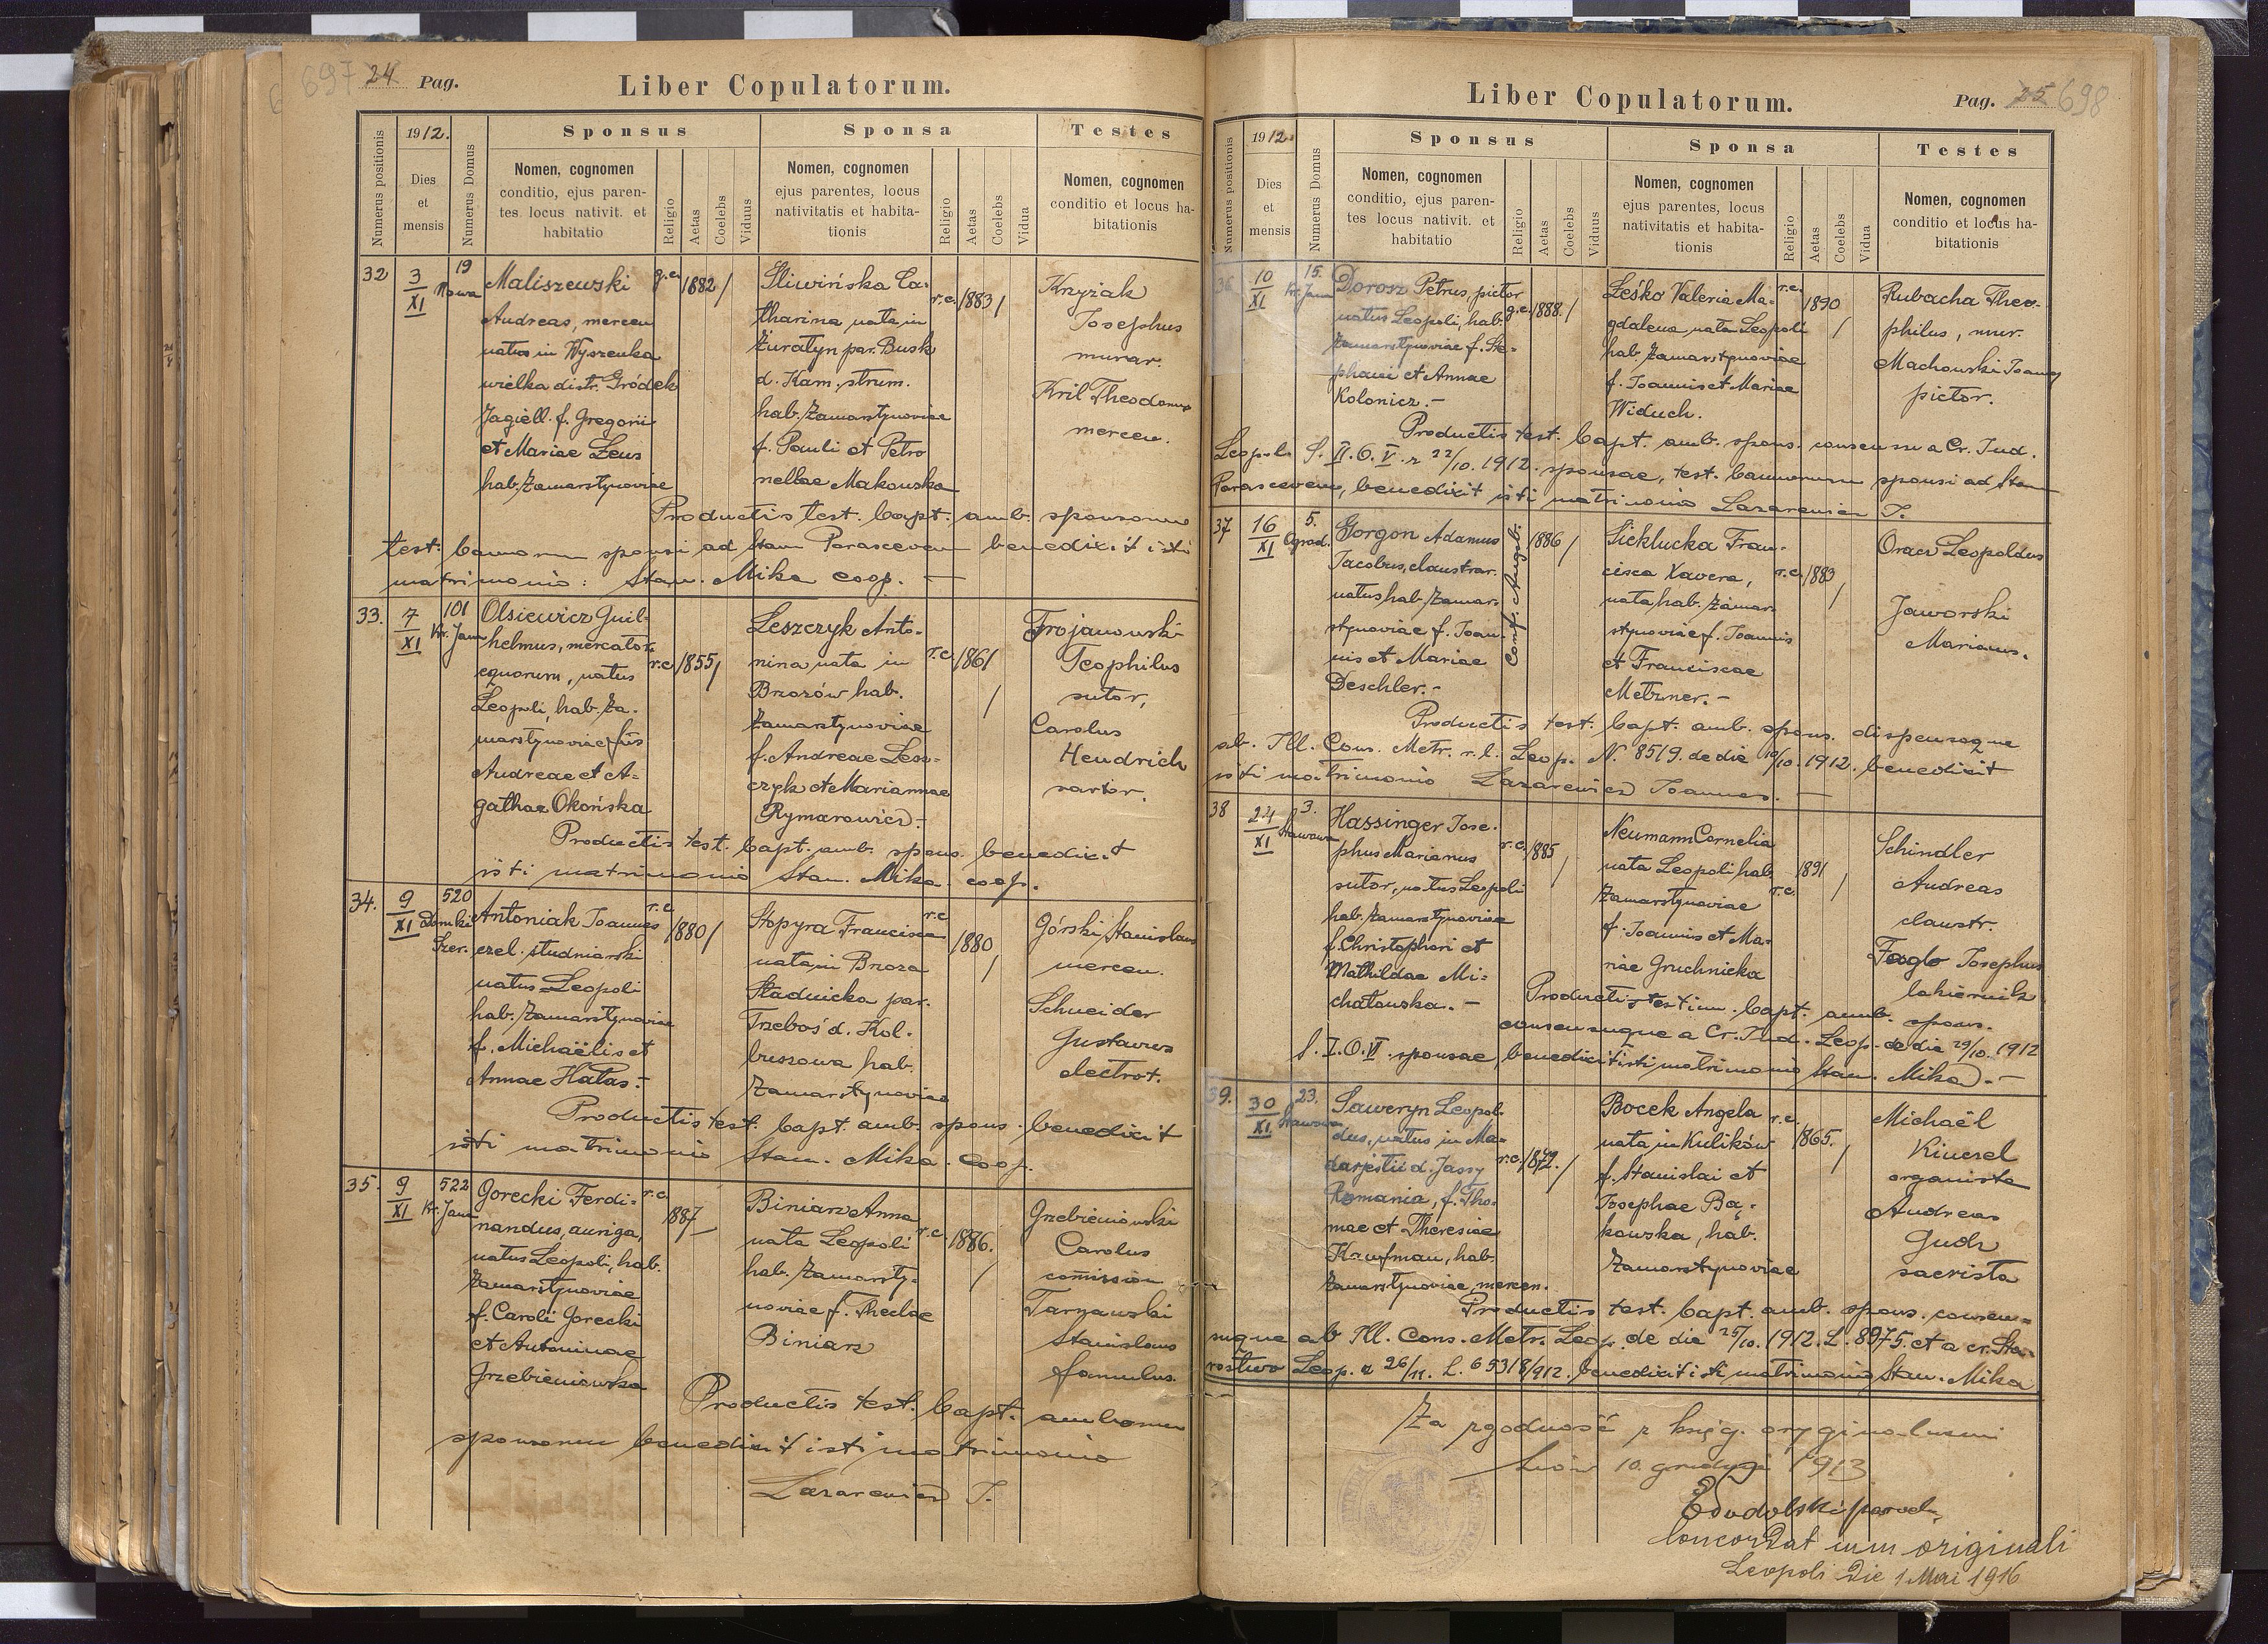 697 24 Pag.
Liber Copulatorum.
Numerus positionis
1912.
Dies
et
mensis
Numerus Domus
Sponsus
Nomen, cognomen
conditio, ejus paren-
tes locus nativit. et
habitatio
Religio
Aetas
Coelebs
Viduus
Sponsa
Nomen, cognomen
ejus parentes, locus
nativitatis et habita-
tionis
Religio
Aetas
Coelebs
Vidua
Testes
Nomen, cognomen
conditio et locus ha-
bitationis
32
3
XI
19
Nowa
Maliszewski
Andreas, mercen
natus in Wyszenka
wielka distr. Gródek
Jagiell. f. Gregorii
et Mariae Leus
hab. Zamarstynoviae
g.c.
1882 /
Śliwińska Ca-
tharina nata in
Żuratyn par. Busk
d. Kam. strum.
hab. Zamarstynoviae
f. Pauli et Petro
nellae Makowska
r.c.
1883 /
Krzyżak
Josephus
murar.
Kril Theodorus
mercen.
Productis test. bapt. amb. sponsorum
test. bannorum sponsi ad Stam Parasceven benedixit isti
matrimonio: Stan. Mika coop. —
33.
7
XI
101
Kr. Jana
Olsiewicz Guil-
helmus, mercator
equorum, natus
Leopoli, hab. Za-
marstynoviae fius
Andreae et A-
gathae Okońska
r.c.
1855 /
Leszczyk Anto-
nina nata in
Brzozów hab.
Zamarstynoviae
f. Andreae Lesz-
czyk et Mariannae
Rymarowicz.-
r.c.
1861
/
Trojanowski
Teophilus
sutor,
Carolus
Hendrich
sartor.
Productis test. bapt. amb. spons. benedixit
isti matrimonio Stan. Mika coop.
34.
9
XI
520
Zamki
Szer.
Antoniak Joannes
czel. studniarski
natus Leopoli
hab. Zamarstynoviae
f. Michaëlis et
Annae Hałas.-
r.c.
1880 /
Stopyra Francisca
nata in Brzoza
Stadnicka par.
Trzeboś d. Kol-
buszowa hab.
Zamarstynoviae
r.c.
1880
/
Górski Stanislaus
mercen.
Schneider
Gustavus
electrot.
Productis test. bapt. amb. spons. benedixit
isti matrimonio Stan. Mika. coop.
35.
9
XI
522
Kr. Jana
Gorecki Ferdi-
nandus, auriga,
natus Leopoli, hab.
Zamarstynoviae
f. Caroli Gorecki
et Antoninae
Grzebieniowska
r.c.
1887
Biniarz Anna
nata Leopoli
hab. Zamarsty-
noviae f. Theclae
Biniarz
r.c.
1886.
/
Grzebieniowski
Carolus
comission
Tarnawski
Stanislaus
famulus.
Productis test. bapt. amborum
sponsorum benedixit isti matrimonio
Lazarewicz J.
Liber Copulatorum.
Pag. 25 698
Numerus positionis
1912.
Dies
et
mensis
Numerus Domus
Sponsus
Nomen, cognomen
conditio, ejus paren-
tes locus nativit. et
habitatio
Religio
Aetas
Coelebs
Viduus
Sponsa
Nomen, cognomen
ejus parentes, locus
nativitatis et habita-
tionis
Religio
Aetas
Coelebs
Vidua
Testes
Nomen, cognomen
conditio et locus ha-
bitationis
36
10
XI
15.
Kr. Jana
Dorosz Petrus, pictor
natus Leopoli, hab.
Zamarstynoviae f. Ste-
phani et Annae
Kolonicz.-
g.c.
1888. /
Leśko Valeria Ma-
gdalena nata Leopoli
hab. Zamarstynoviae
f. Joannis et Mariae
Widuch.
r.c.
1890
/
Rubacha Theo-
philus, mur.
Machowski Joannes
pictor.
Productis test. bapt. amb. spons. consensu a Cr. Jud.
Leopol. S. II. O. V. z 22/10. 1912. sponsae, test. bannorum sponsi ad Stam
Parasceven, benedixit isti matrimonio Lazarewicz J.
37
16
XI
5.
Ogrod.
Gorgon Adamus
Jacobus, claustrar.
natus hab. Zamar-
stynoviae f. Joan-
nis et Mariae
Deschler.-
Conf. Augsb.
1886 /
Sicklucka Fran-
cisca Xavera,
nata hab. Zamar-
stynoviae f. Joannis
et Franciscae
Metzner.-
r.c.
1883
/
Oracz Leopoldus
Jaworski
Marianus.
Productis test. bapt. amb. spons. dispensaque
ab. Ill. Cons. Metr. r.l. Leop. N. 8519. de die 10/10. 1912. benedixit
isti matrimonio Lazarewicz Joannes. —
38
24
XI
3.
Stawowa
Hassinger Jose-
phus Marianus
sutor, natus Leopoli
hab. Zamarstynoviae
f. Christophori et
Mathildae Mi-
chałowska.-
r.c.
1885
/
Neumann Cornelia
nata Leopoli hab.
Zamarstynoviae
f. Joannis et Ma-
riae Gruchnicka
r.c.
1891
/
Schindler
Andreas
claustr.
Faglo Josephus
lakiernik
Productis testim. bapt. amb. spons.
consensuque a Cr. Jud. Leop. de die 29/10. 1912
S. I. O. VI. sponsae, benedixit isti matrimonio Stan. Mika.-
39.
30
XI
23.
Stawowa
Saweryn Leopol-
dus, natus in Ma-
darjestii d. Jassy
Romania, f. Tho-
mae et Theresiae
Kaufman, hab.
Zamarstynoviae, mercen.
r.c.
1872. /
Bocek Angela
nata in Kulików
f. Stanislai et
Josephae Bą-
kowska, hab.
Zamarstynoviae
r.c.
1865.
/
Michaël
Kincel
organista
Andreas
Gudz
sacrista
Productis test. bapt. amb. spons. consen-
suque ab Ill. Cons. Metr. Leop. de die 25/10. 1912. L. 8975. et a cr. Sta-
rostwo Leop. d 26/11. L. 65318/912. benedixit isti matrimonio Stan. Mika
Za zgodność z księg. oryginalnemi
Lwów 10. grudzja 1913
Concordat cum originali
Leopoli die 1 Mai 1916